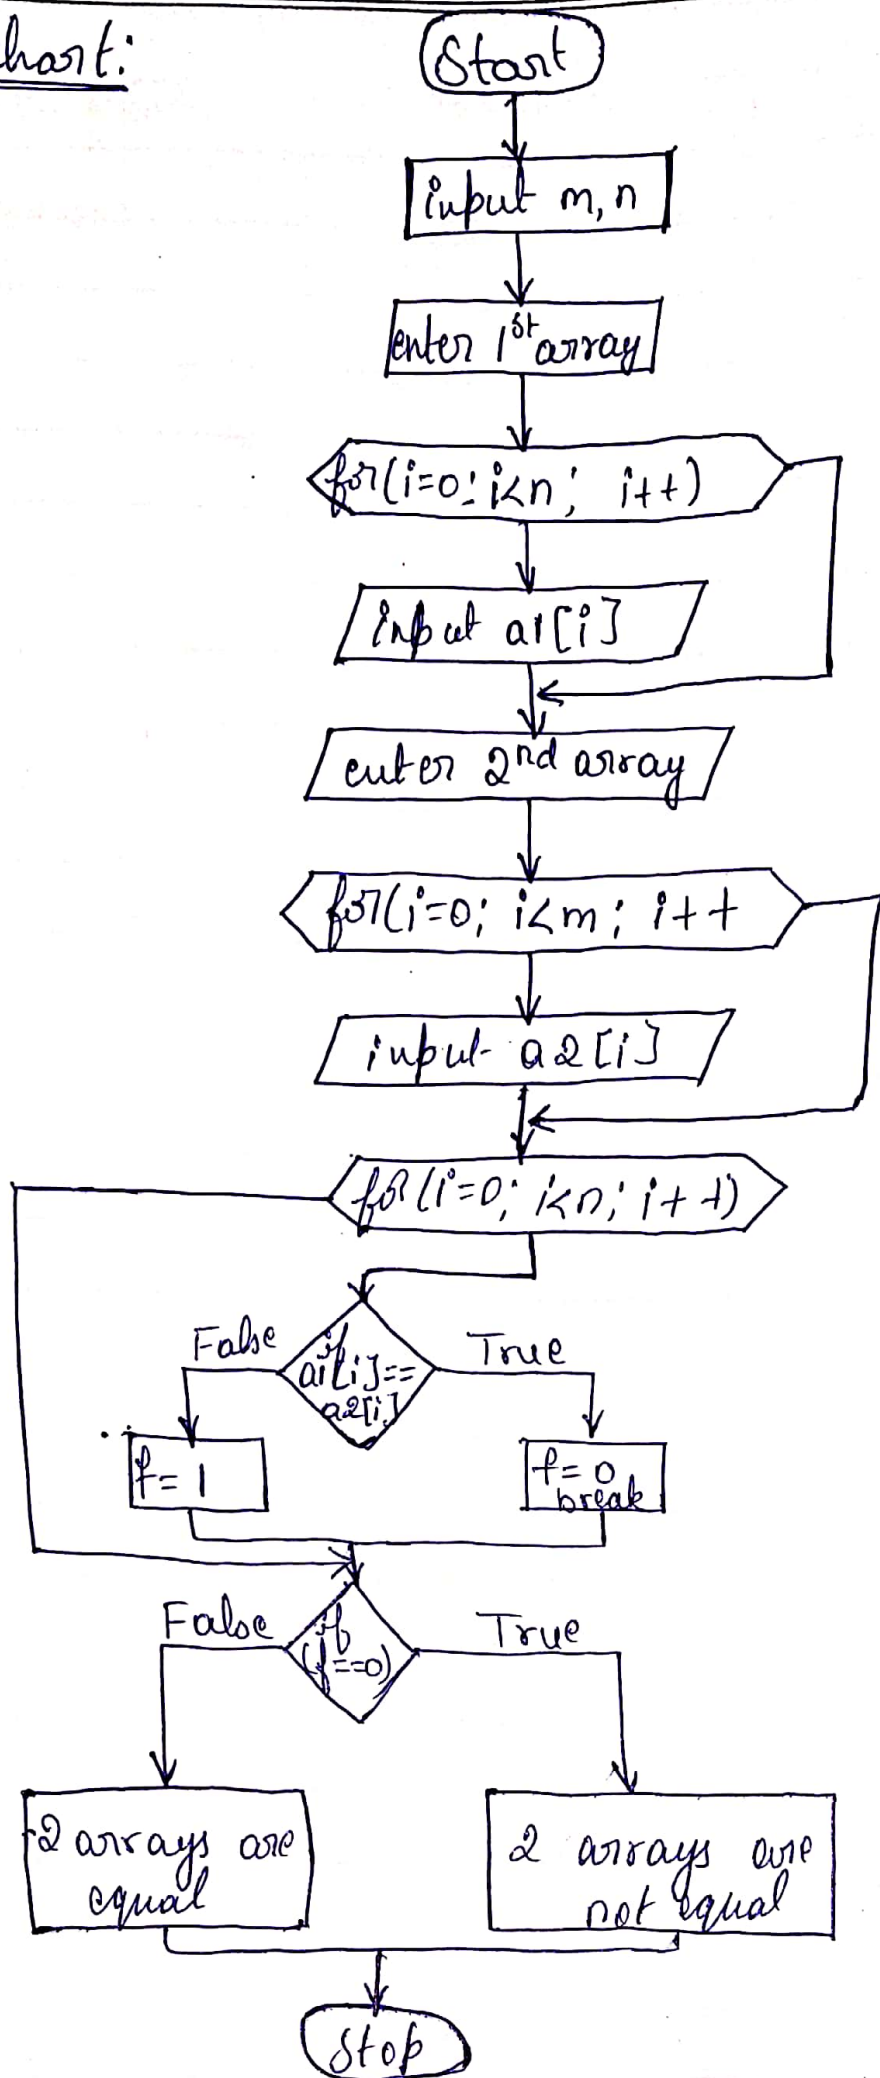 hart:
Start
input m, n
enter 1st array
for(i=0; i<n; i++)
input a1[i]
enter 2nd array
for(i=0; i<m; i++
input a2[i]
for(i=0; i<n; i++)
False
if
a1[i]==
a2[i]
True
f= 1
f= 0
break
False
if
(f==0)
True
2 arrays are
equal
2 arrays are
not equal
Stop